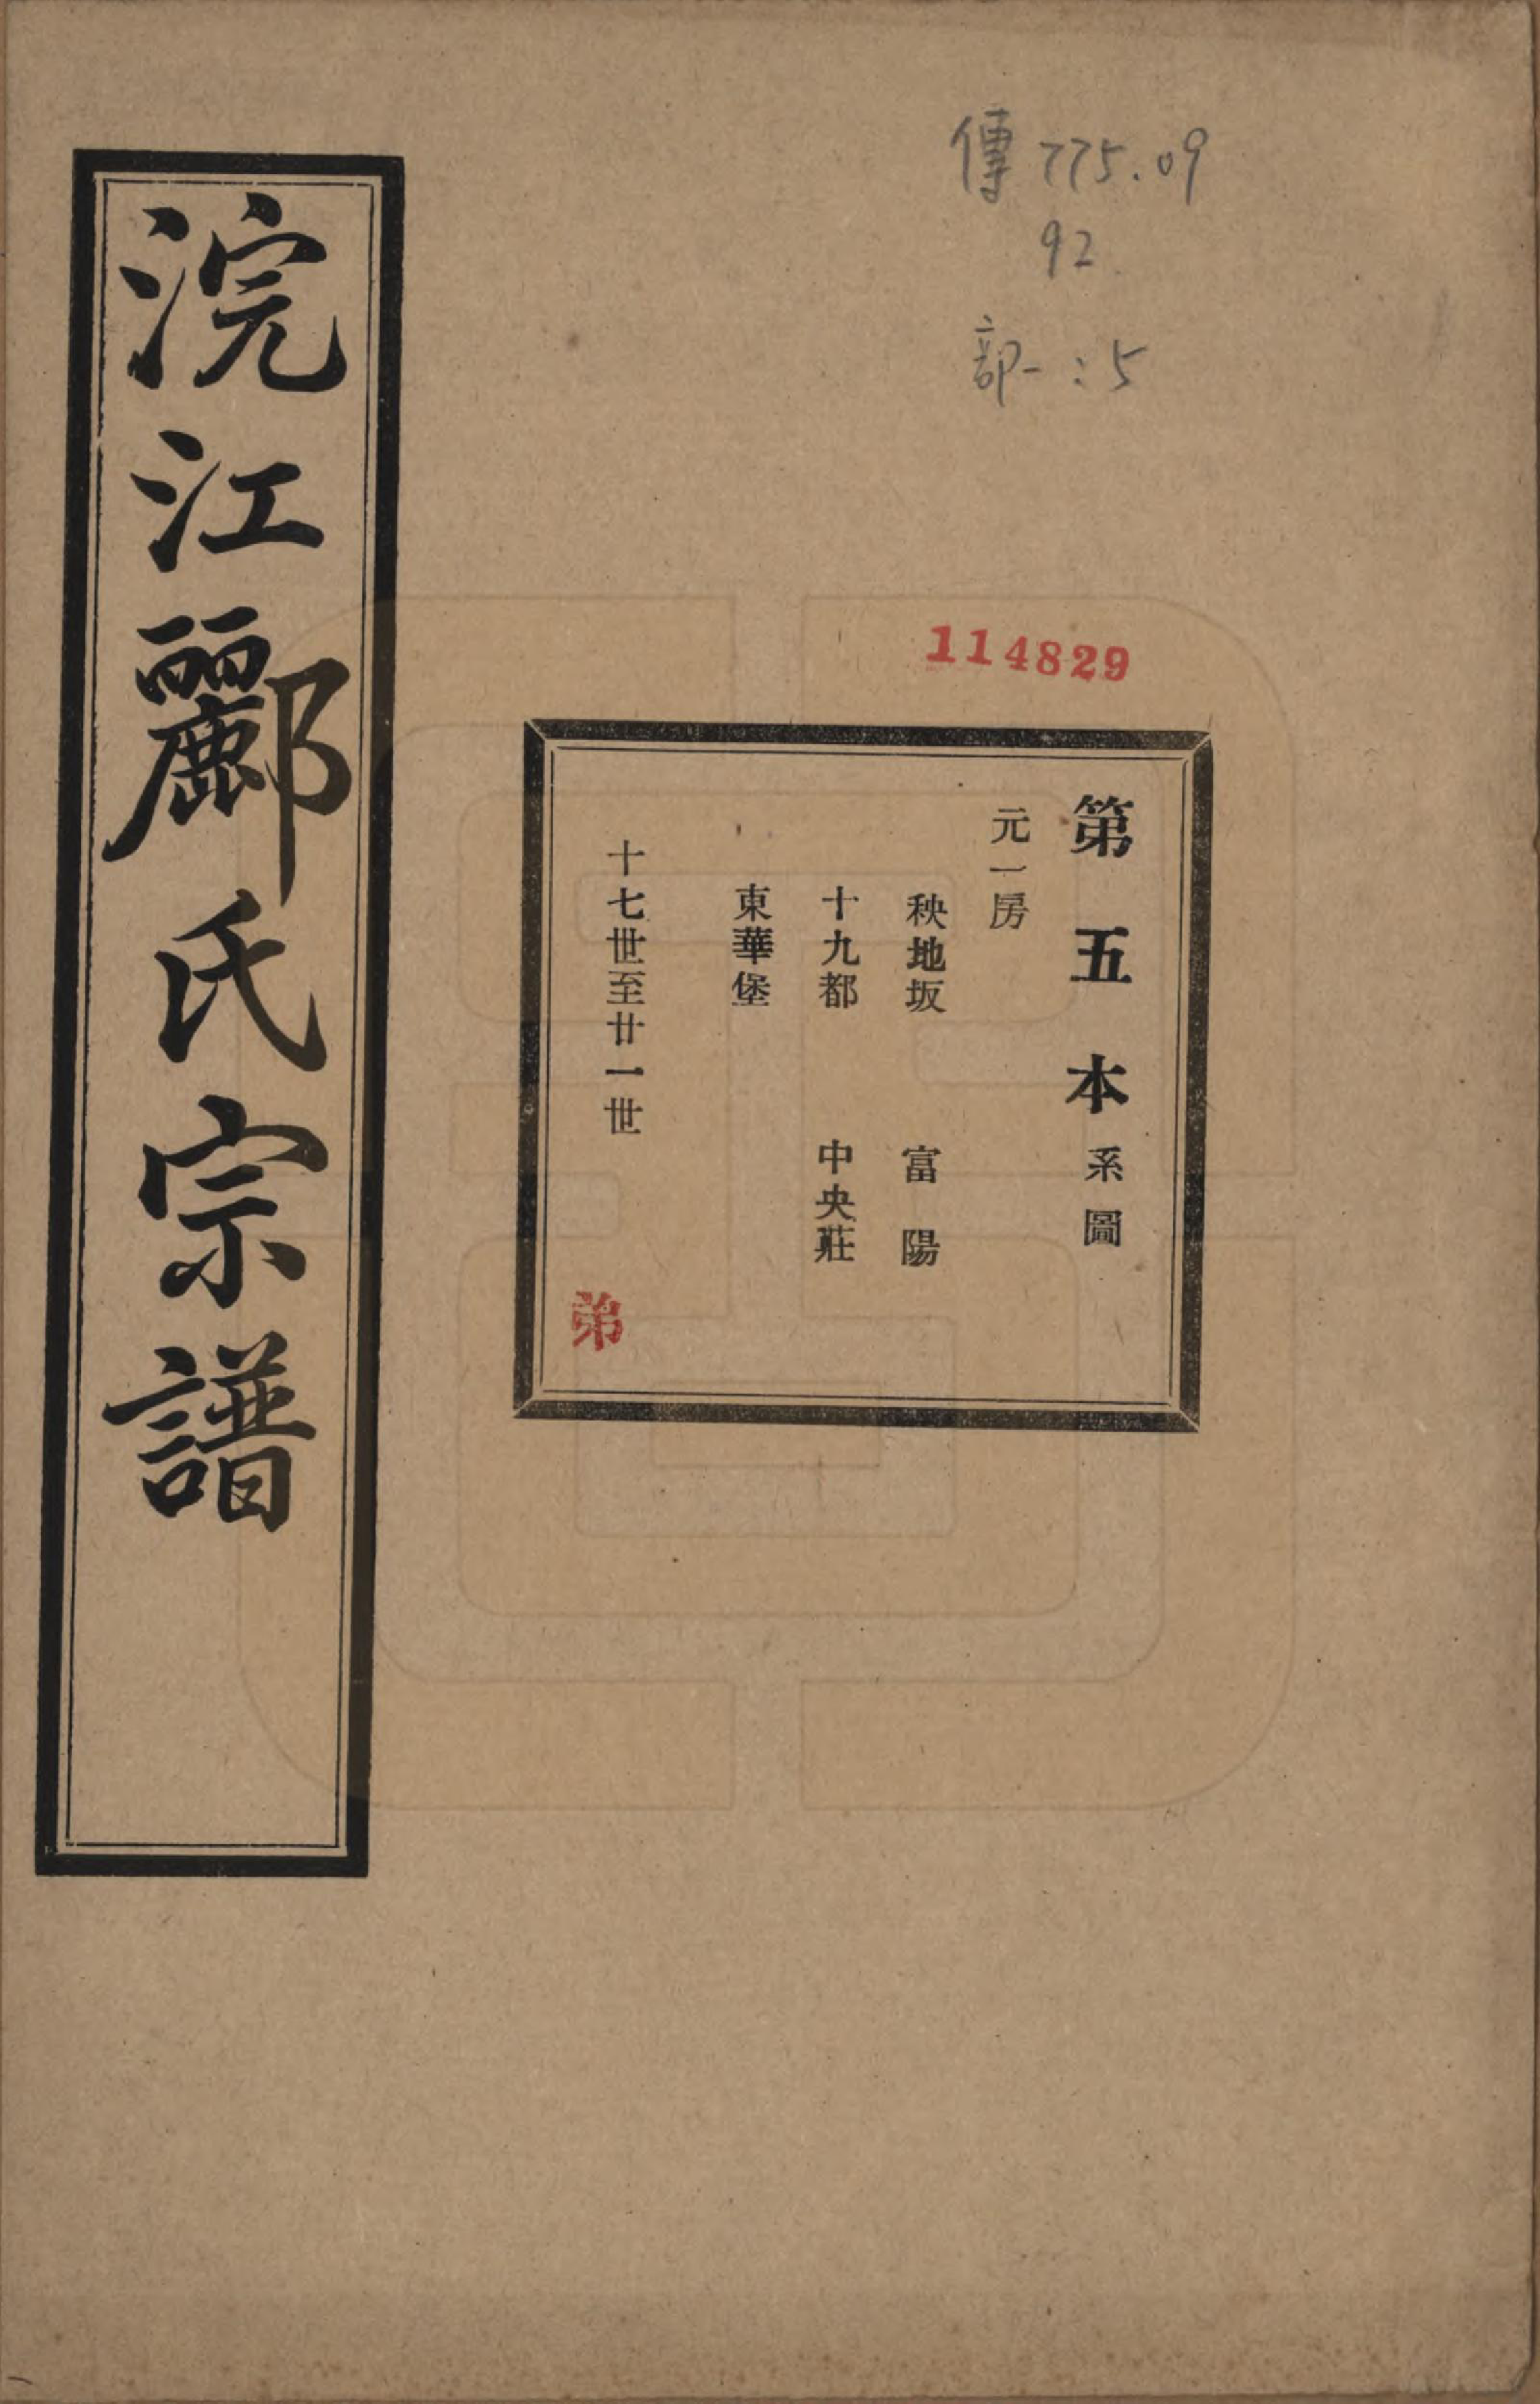 傳 775.09
92
部一：5
114829
第五本系圖
元一房
秧地坂 富陽
十九都 中央莊
東華堡
十七世至廿一世
弟
浣江酈氏宗譜